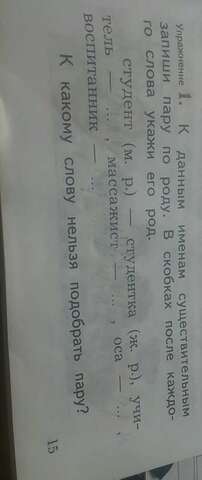 Упражнение 1. К данным именам существительным
запиши пару по роду. В скобках после каждо-
го слова укажи его род.
студент (м. р.) — студентка (ж. р.), учи-
тель — ... , массажист — ... , оса — ... ,
воспитанник — ... .
К какому слову нельзя подобрать пару?
15